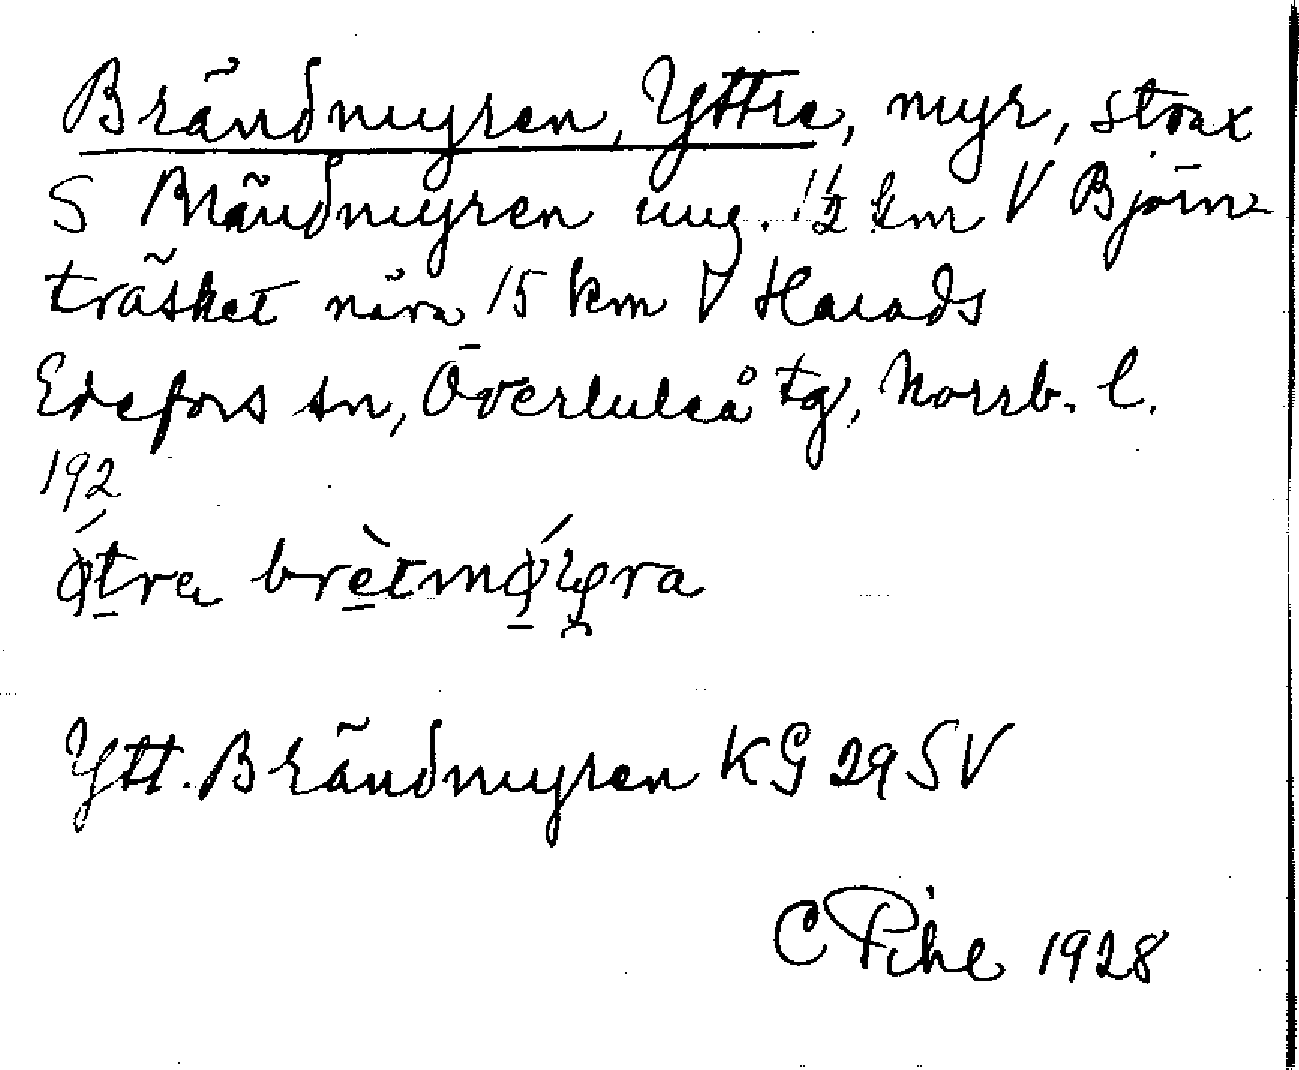 Brändmyren, Yttre, myr, strax
S Brändmyren ung. 1½ km V Björn-
träsket nära 15 km V Harads
Edefors sn, Överluleå tg, Norrb. l.
192
Ytt. Brändmyren KG 29 SV
C Pihl 1928